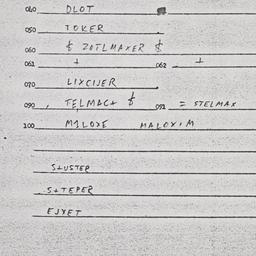 040 DLOT
050 TOKER
060 ZOTLMAXER
061 062
070 LIXCIJER
090 TELMACH 091 = STELMAX
100 MALOXE MALOXIM
S+USTER
S+TEPER
EJXET